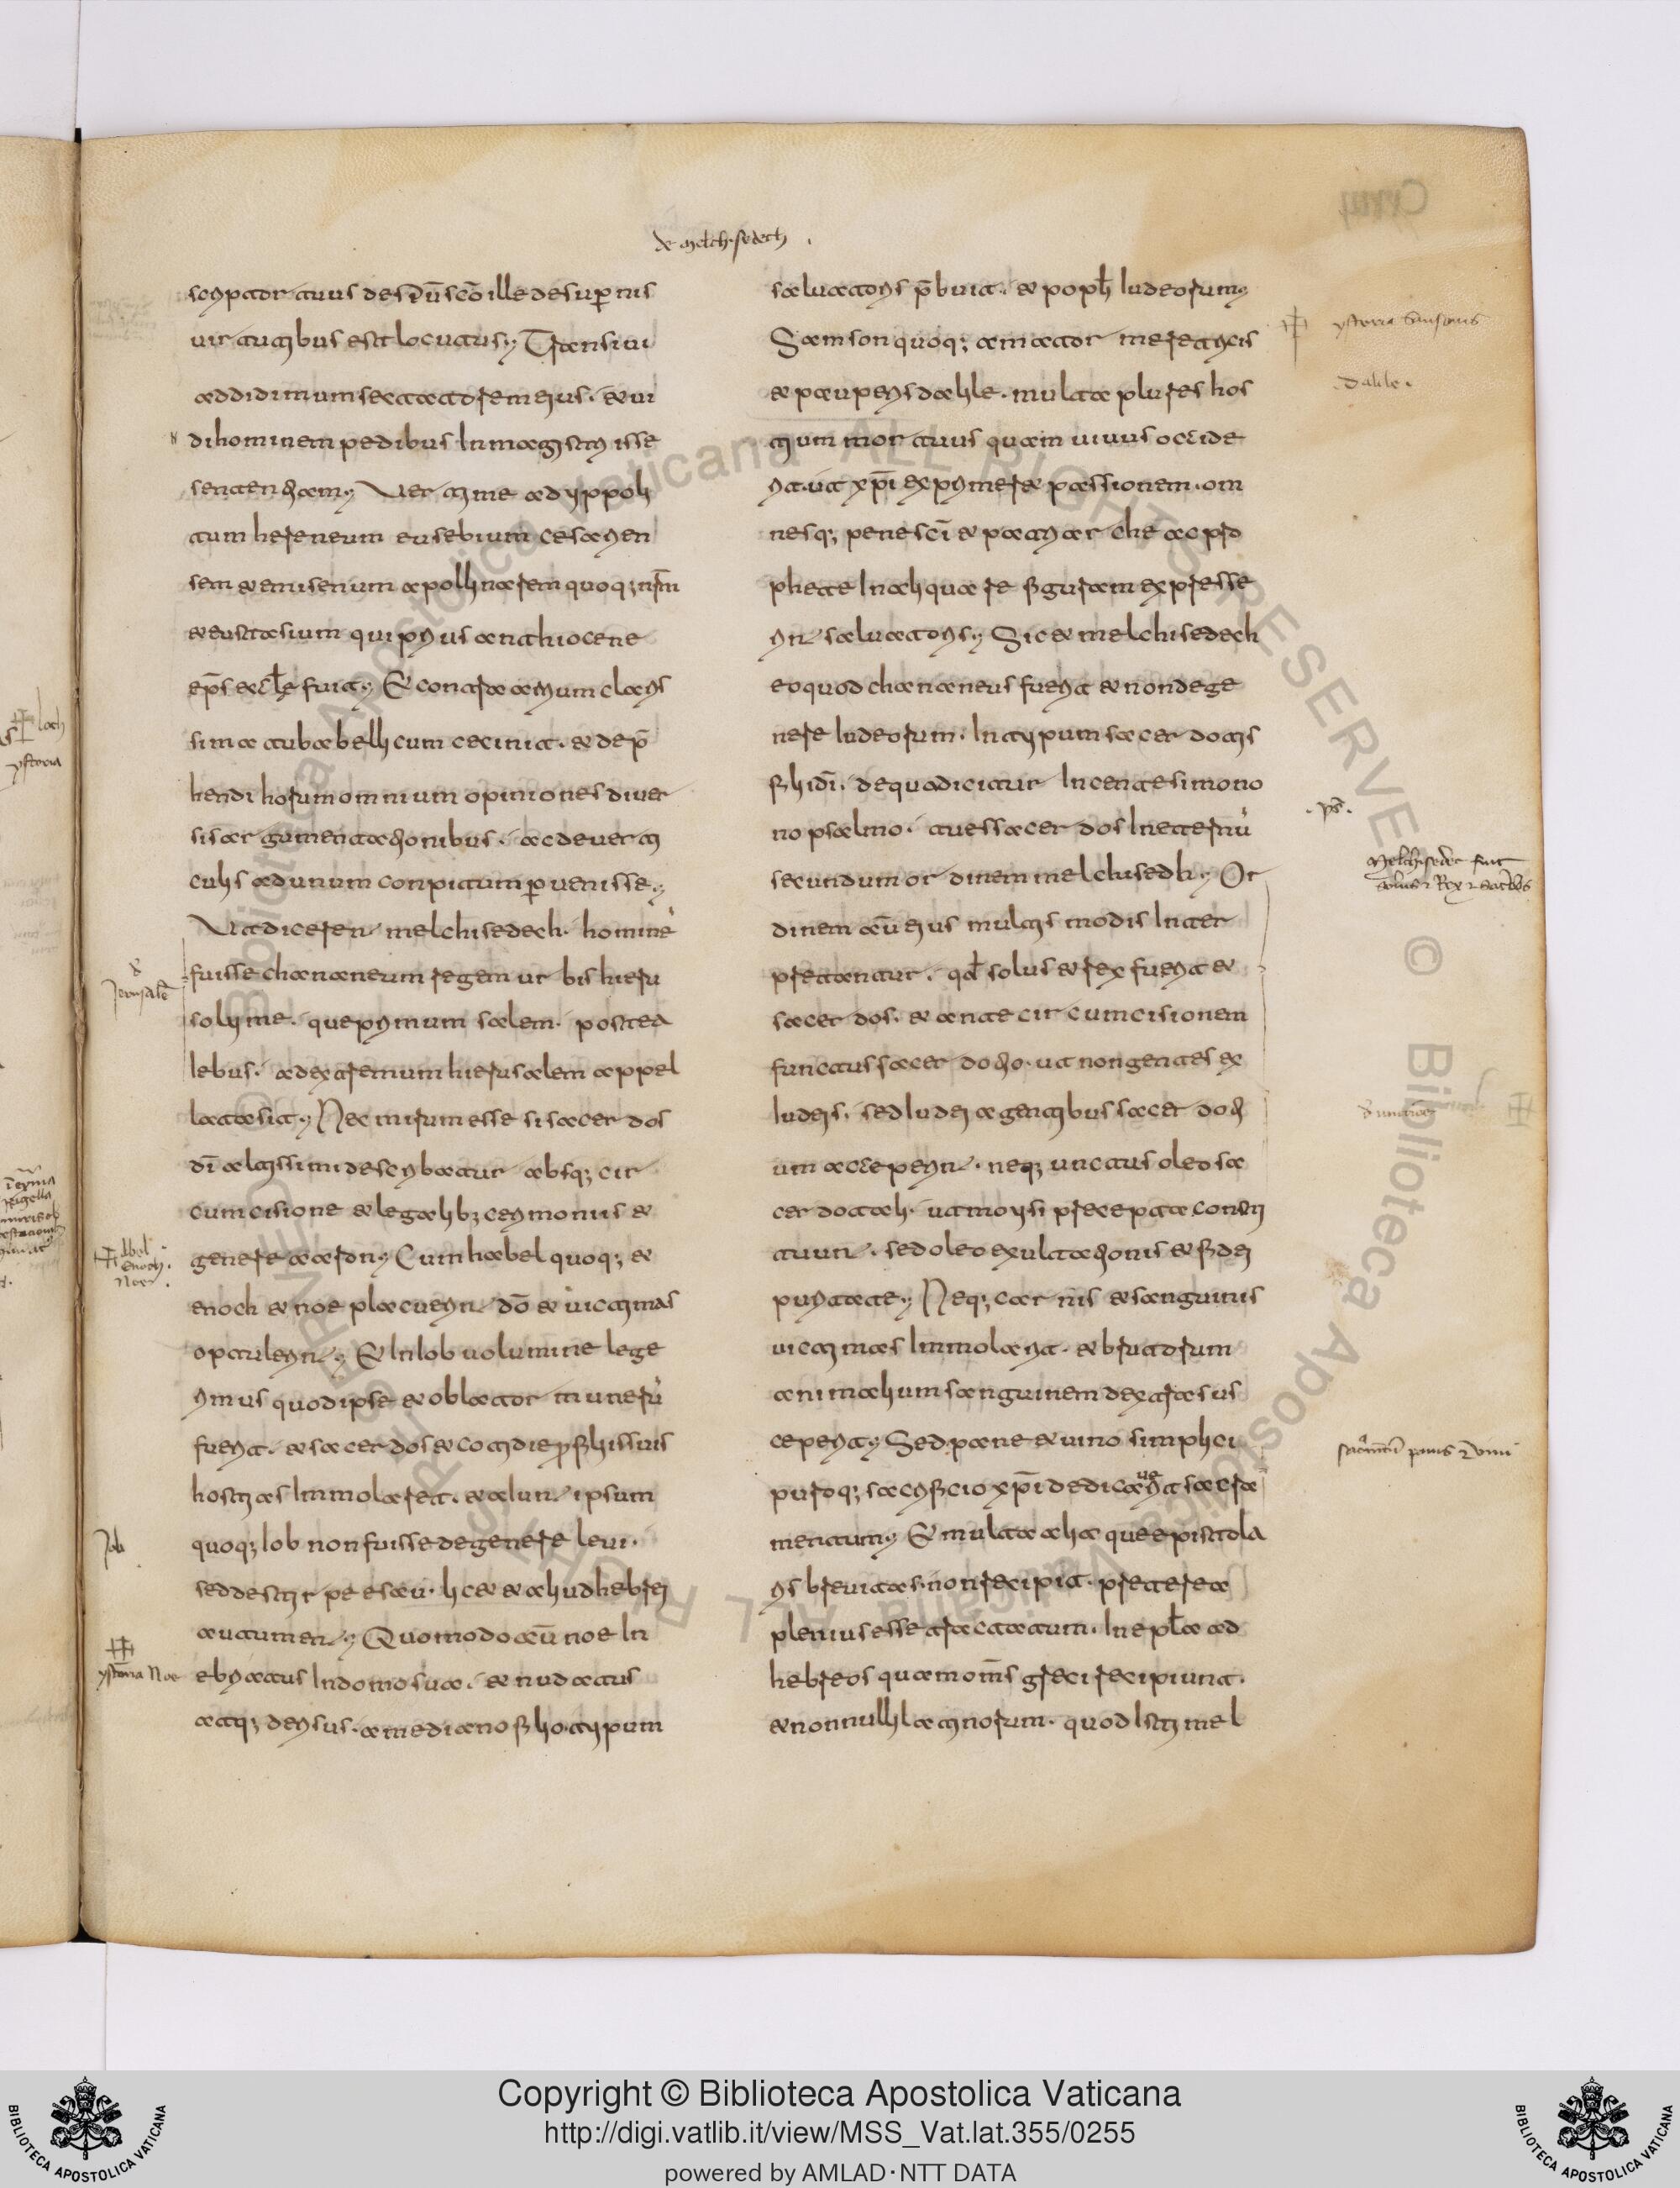 de melchisedech
scriptor aius desp̄u sc̄o ille de sup̄nis
uirtutibus est locutus; Transiui
ad didimum sectatorem eius. & ui
di hominem pedibus In magistri isse
sententiam; Verti me ad yppoli
tum hereneum eusebium cesarien
sem & emisenum apollinarem quoq; nr̄m
& eustasium qui primus anthiocene
ep̄s eccl̄e fuit; Et contra arrium claris
sima tuba bellicum cecinit. & dep̄
hendi horum omnium opiniones diuer
sis argumentationibus. ac deuerti
culis ad unum conpitum p̄uenisse;
Vt dicerent melchisedech. hominē
fuisse chananeum regem urbis hieru
solyme. que primum salem. postea
Iebus. ad extremum hierusalem appel
lata sit; Nec mirum esse si sacerdos
dī altissimi describatur absq; cir
cumcisione & legalib; cerimoniis &
genere aaron; Cum habel quoq; &
enoch & noe placuerint dō & uictimas
optulerint; Et In Iob uolumine lege
rimus quod ipse & oblator munerū
fuerit. & sacerdos & cotidie p filiis suis
hostias Immolaret. & aiunt ipsum
quoq; Iob non fuisse de genere leui.
sed de stirpe esau. lic& & aliud hebrei
autument; Quomodo aū noe In
ebriatus In domo sua. & nudatus
atq; derisus. a mediano filio. typum
saluatoris p̄buit. & popl̄i Iudeorum;
Samson quoq; amator meretricis
& pauperis dalile. multo plures hos
tium mortuus quam uiuus occide
rit. ut xp̄i exprimere passionem. om
nesq; pene sc̄i & patriarche ac pro
phete In aliqua re figuram expresse
rint saluatoris; Sic & melchisedech
eo quod chananeus fuerit & non de ge
nere Iudeorum. In typum sacerdotis
filii dī. de quo dicitur In centesimo no
no psalmo. tu es sacerdos In eternū
secundum ordinem melchisedh; Or
dinem aū eius multis modis Inter
pretantur. qd̄ solus & rex fuerit &
sacerdos. & ante circumcisionem
functus sacerdotio. ut non gentes ex
Iudeis. sed Iudei a gentibus sacerdoti
um acceperint. neq; unctus oleo sa
cerdotali. ut moysi precepta consti
tuunt. sed oleo exultationis & fidei
puritate; Neq; carnis & sanguinis
uictimas Immolarit. & brutorum
animalium sanguinem dextra sus
ceperit; Sed pane & uino simplici
puroq; sacrificio xp̄i dedicauerit sacra
mentum; Et multa alia que epistola
ris breuitas. non recipit. preterea
plenius esse tractatum. In epl̄a ad
hebreos quam om̄s greci recipiunt.
& nonnulli latinorum. quod Iste mel
ystoria
dalile.
ps̄.
Melchisedec fuit
solus & Rex & sacerdos
sacr̄m̄tū panis & vini
Abel
enoch.
Noe.
Job
ystoria Noe
ystoria
Copyright © Biblioteca Apostolica Vaticana
http://digi.vatlib.it/view/MSS_Vat.lat.355/0255
powered by AMLAD·NTT DATA
BIBLIOTECA APOSTOLICA VATICANA
BIBLIOTECA APOSTOLICA VATICANA